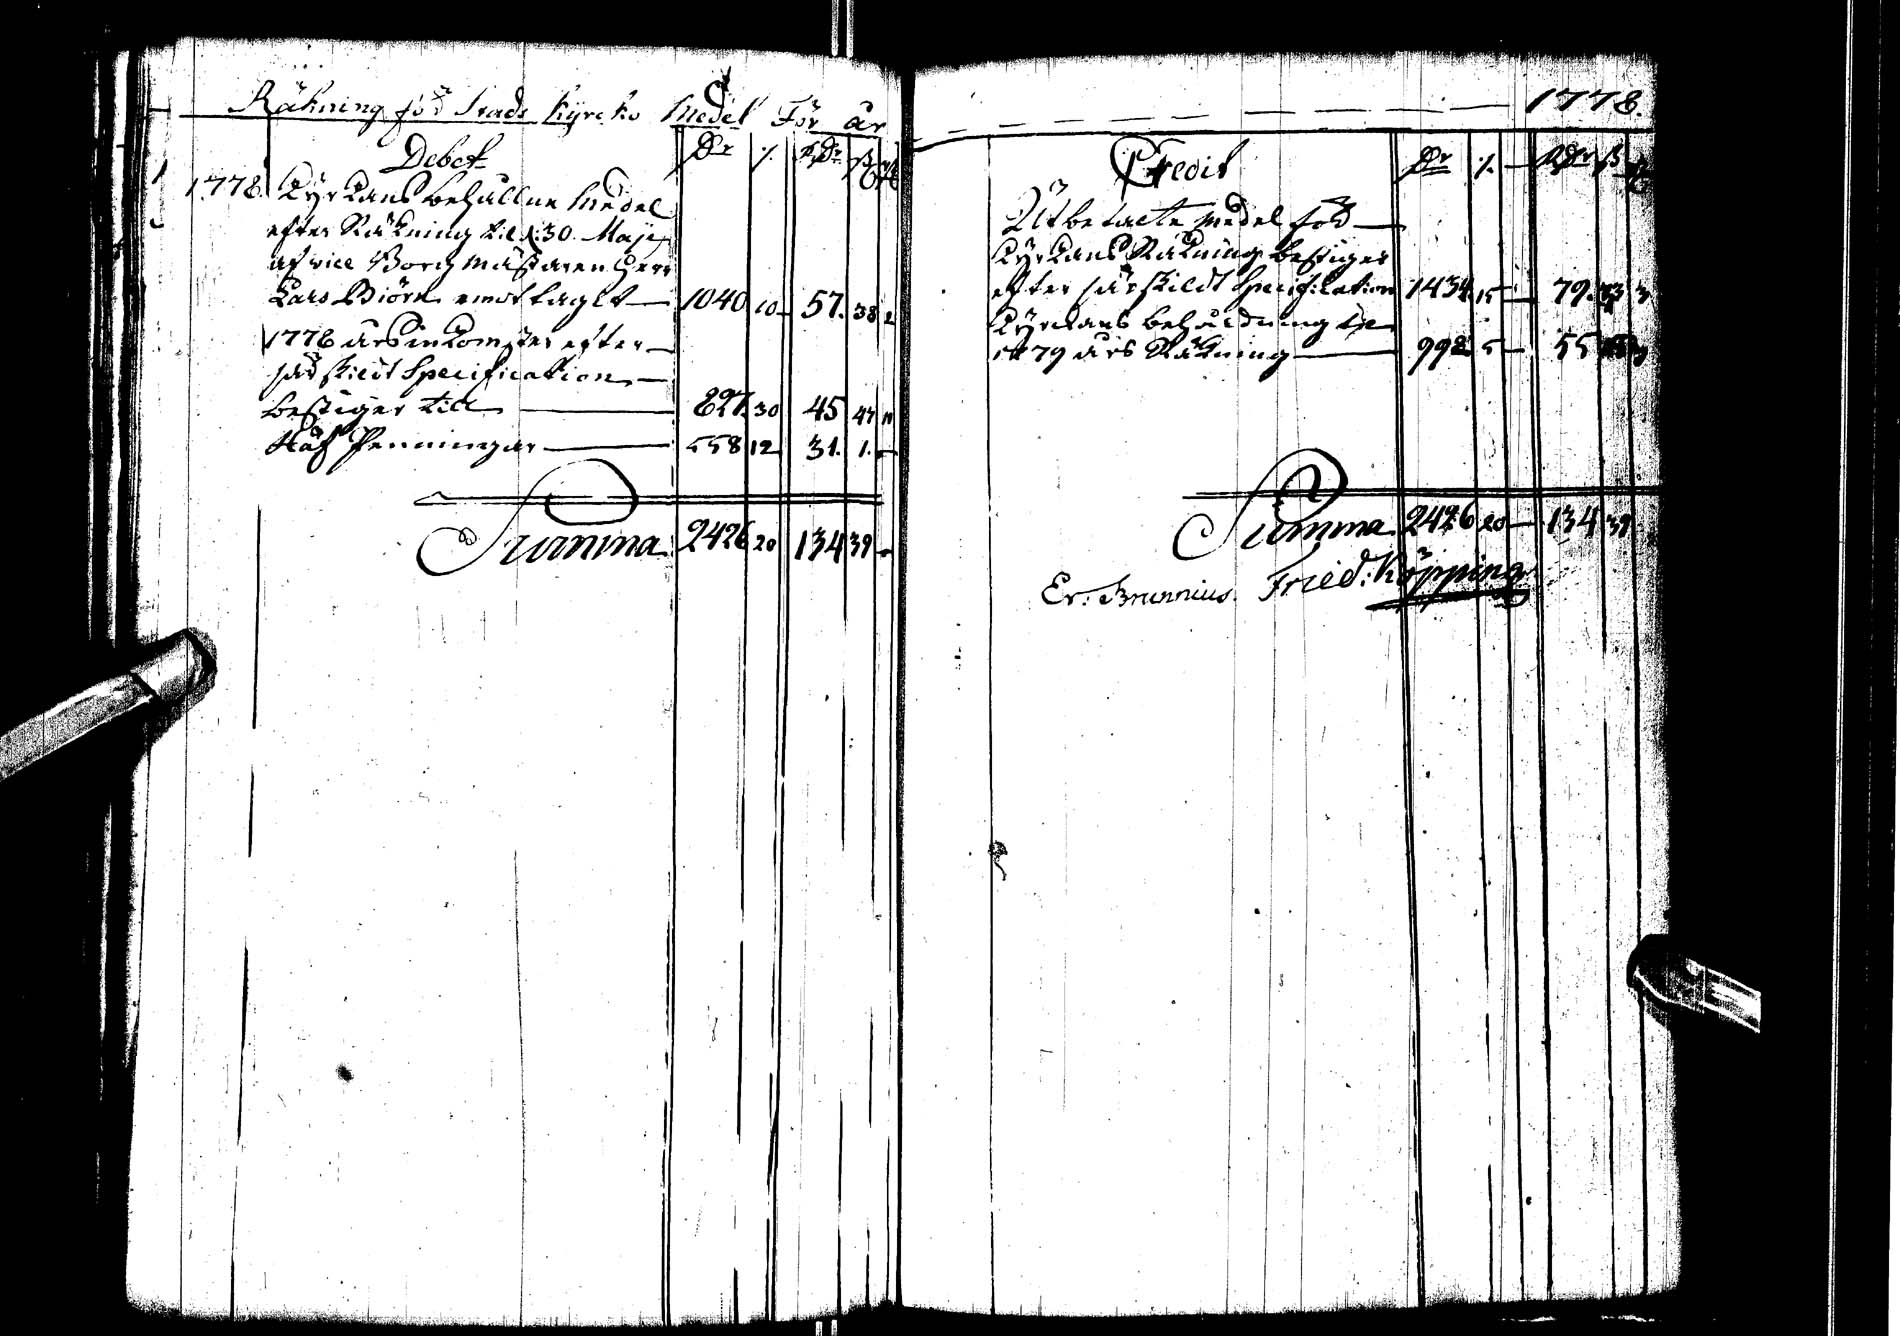 Räkning för Stads Kyrcko Medel För år
Debet Dr % RDr ß
1778. Kyrkans behållne Medel
efter Räkning til d: 30. Maji
af vice Borgmästaren Herr
Lars Biörn emottaget 1040 10 57. 38 2
1778 års inkomster efter
särskildt Specification
bestiger till 827. 30 45 47 11
Håf Penningar 558 12 31. 1.
Summa 2426 20 134 39
1778.
Credit Dr % RDr ß
Utbetalte medel för
Kyrkans Räkning bestiger
efter särskildt Specification 1434 15 79.
Kyrckans behåldning til
1779 års Räkning 992 5 55
Summa 2426 20 134 39
Er: Brunnius. Fried: Köpping